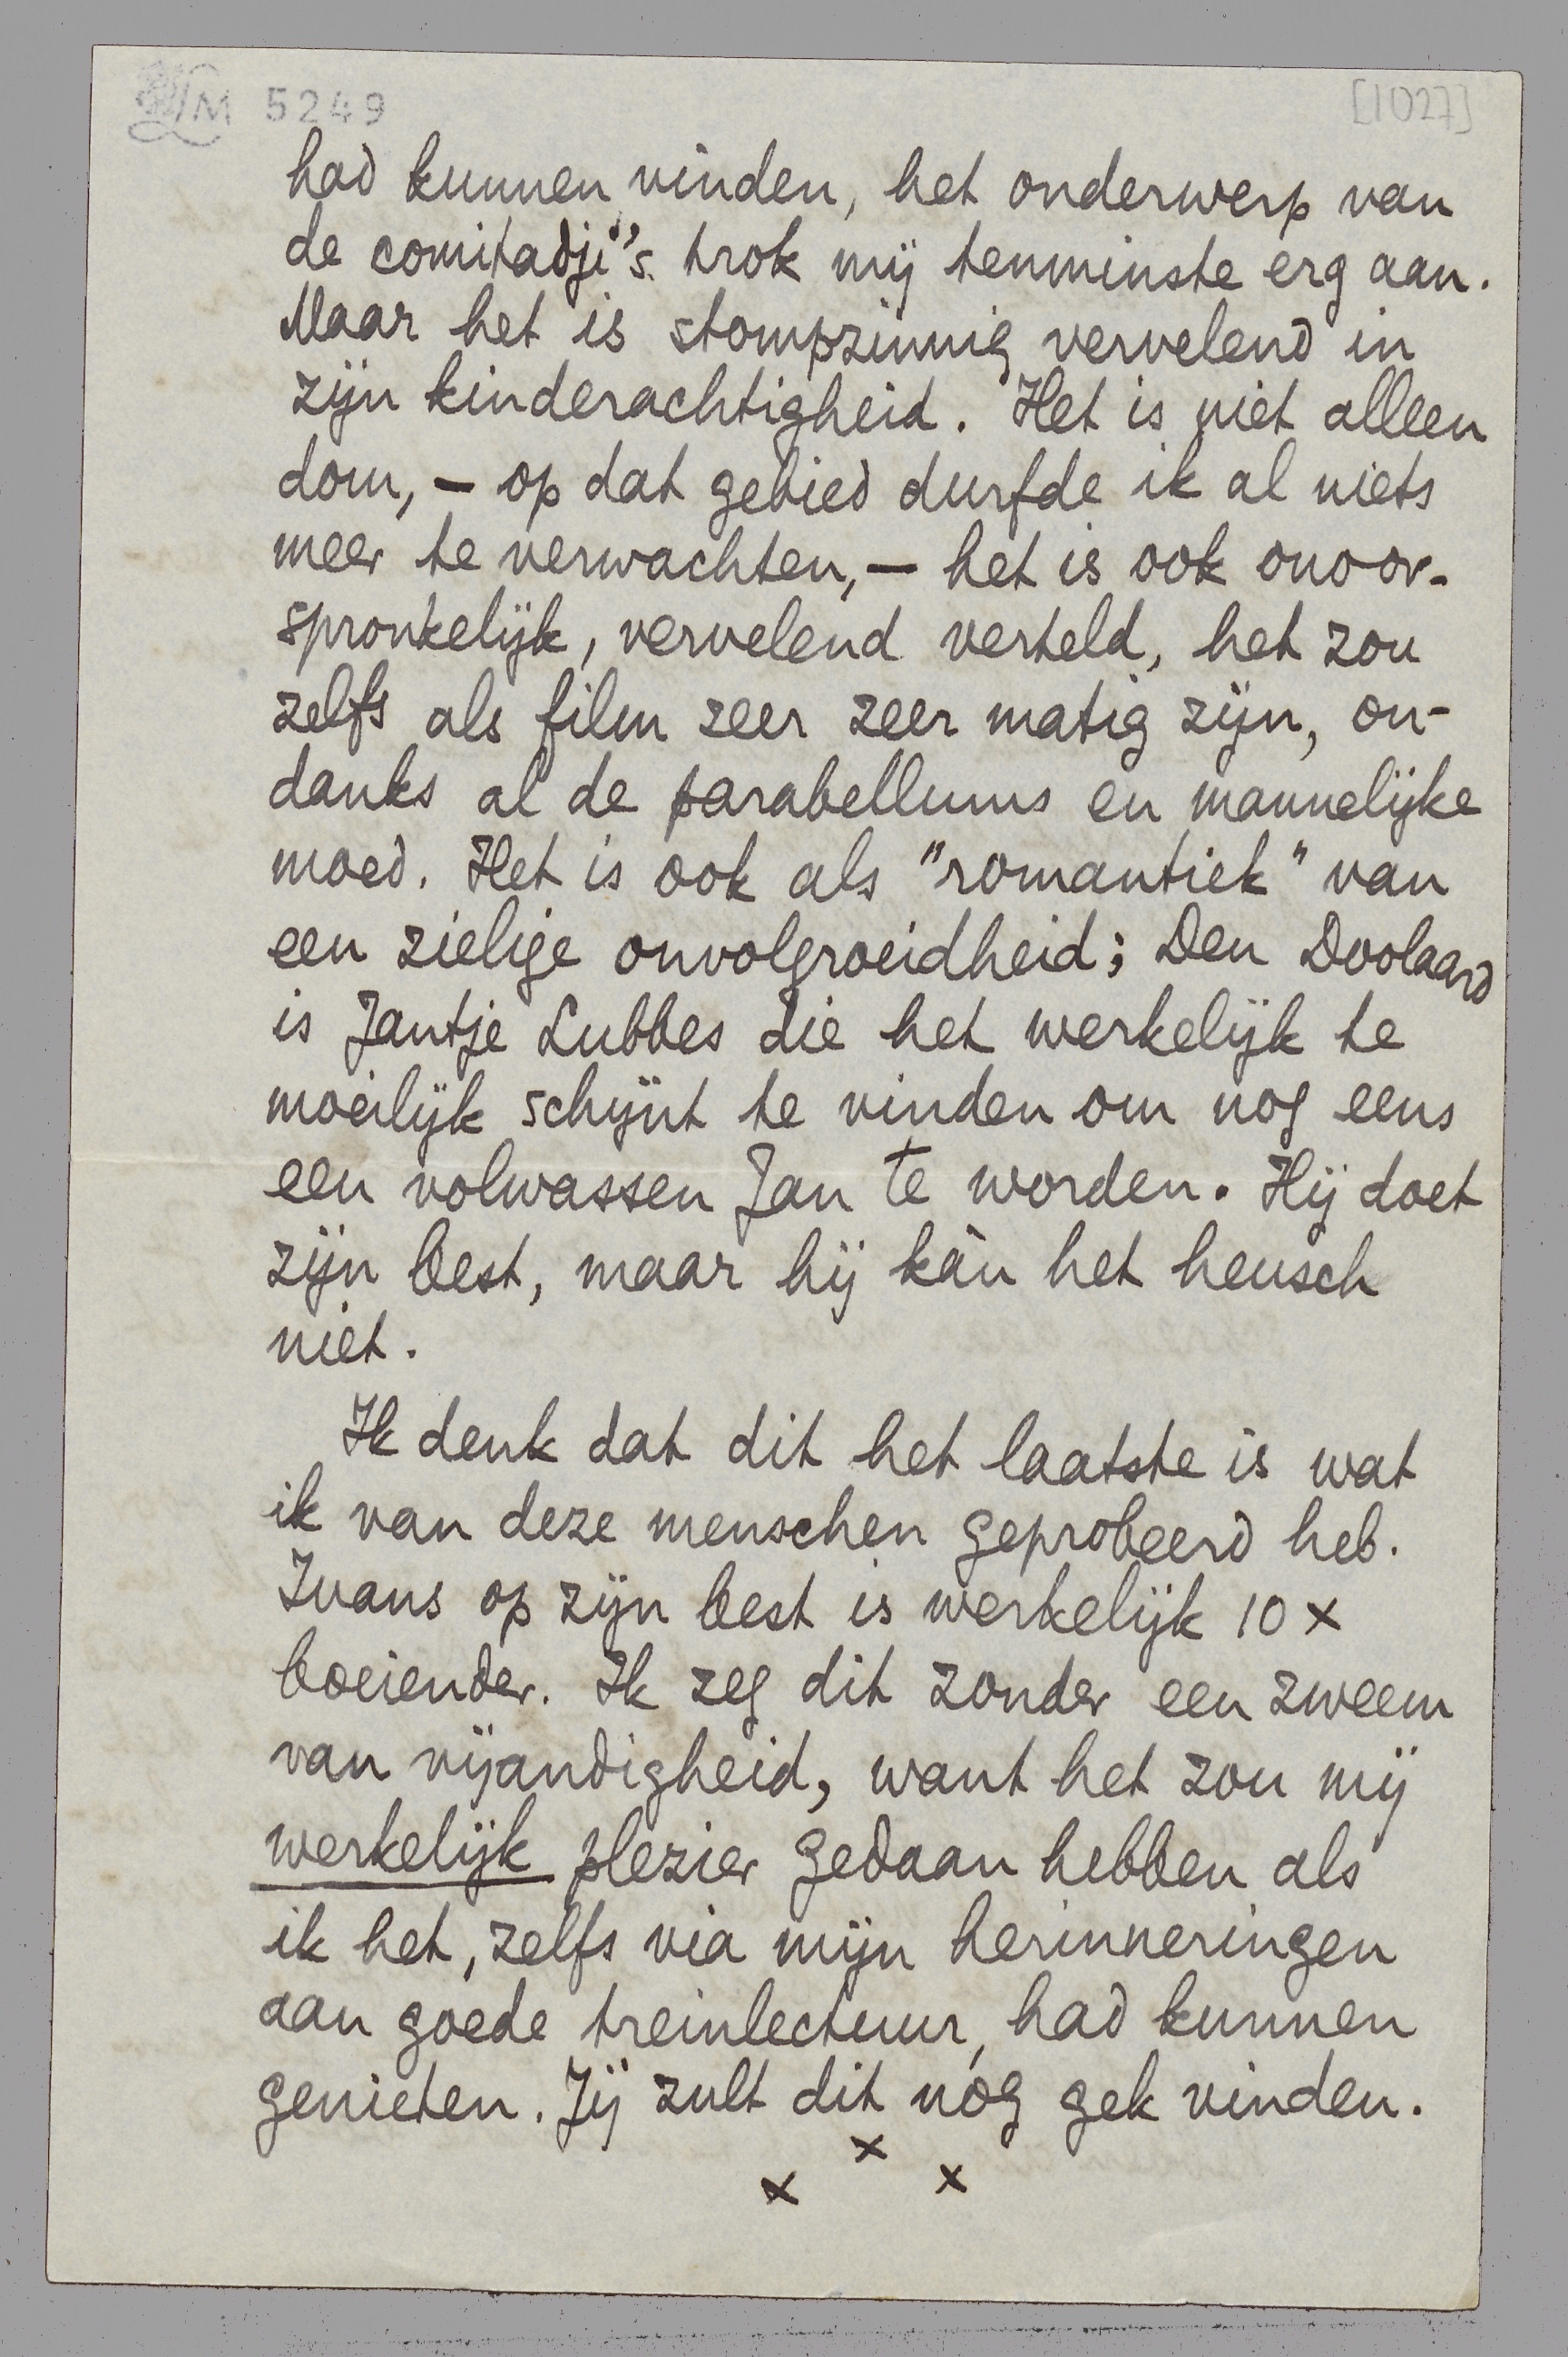 LM 5249
[1027]
had kunnen vinden, het onderwerp van
de comitadji's trok mij tenminste erg aan.
Maar het is stompzinnig vervelend in
zijn kinderachtigheid. Het is niet alleen
dom, — op dat gebied durfde ik al niets
meer te verwachten, — het is ook onoor-
spronkelijk, vervelend verteld, het zou
zelfs als film zeer zeer matig zijn, on-
danks al de parabellums en mannelijke
moed. Het is ook als "romantiek" van
een zielige onvolgroeidheid; Den Doolaard
is Jantje Lubbes die het werkelijk te
moeilijk schijnt te vinden om nog eens
een volwassen Jan te worden. Hij doet
zijn best, maar hij kàn het heusch
niet.
Ik denk dat dit het laatste is wat
ik van deze menschen geprobeerd heb.
Ivans op zijn best is werkelijk 10 x
boeiender. Ik zeg dit zonder een zweem
van vijandigheid, want het zou mij
werkelijk plezier gedaan hebben als
ik het, zelfs via mijn herinneringen
aan goede treinlectuur, had kunnen
genieten. Jij zult dit nóg gek vinden.
x
x x